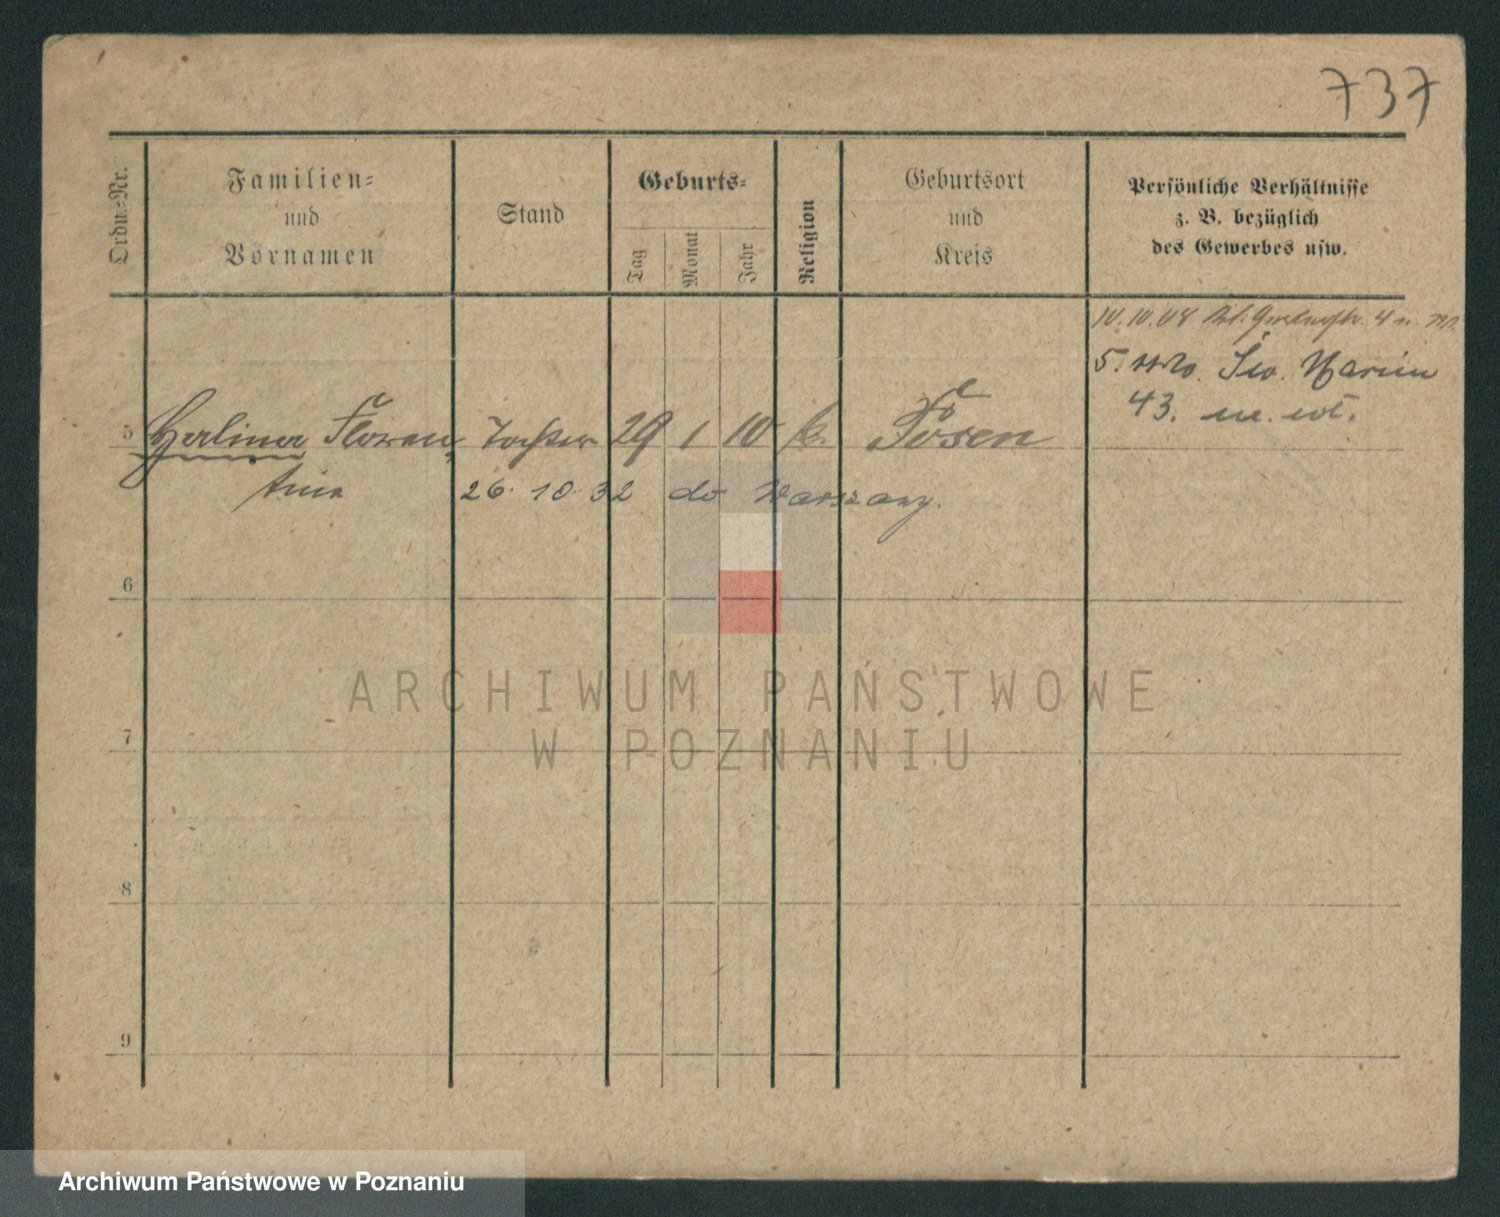 737
Ordn.-Nr.
Familien-
und
Vornamen
Stand
Geburts-
Tag
Monat
Jahr
Religion
Geburtsort
und
Kreis
Persönliche Verhältnisse
z. B. bezüglich
des Gewerbes usw.
10.10.08 4
5. Św. Marcin
43. m. wł.
5 Berliner Floren- Tochter 29 1 10 k. Posen
tina 26. 10. 32 do Warszawy.
6
7
8
9
ARCHIWUM PAŃSTWOWE
W POZNANIU
Archiwum Państwowe w Poznaniu